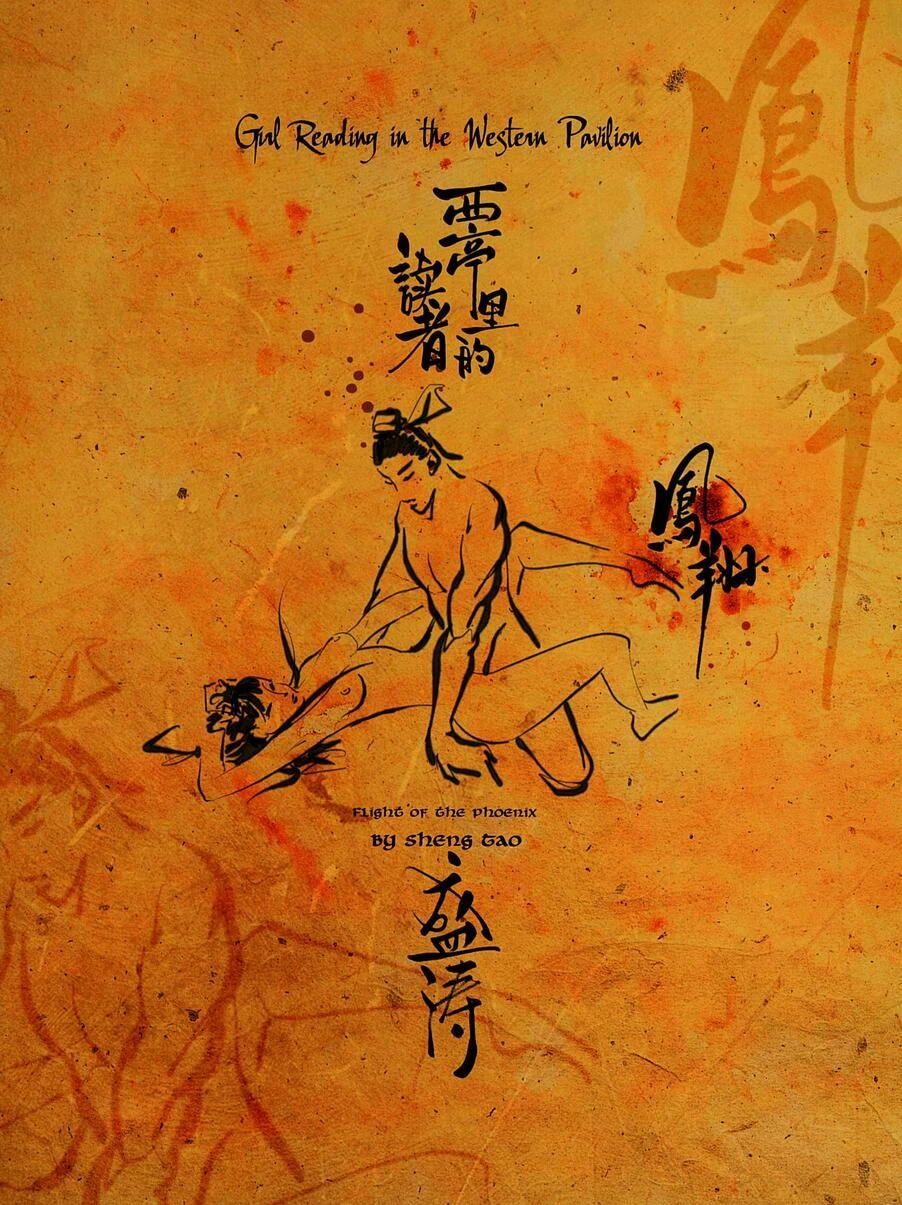 Girl Reading in the Western Pavilion
西亭里的
讀者
鳳翔
鳳翔
Flight of the Phoenix
By Sheng Tao
盛涛